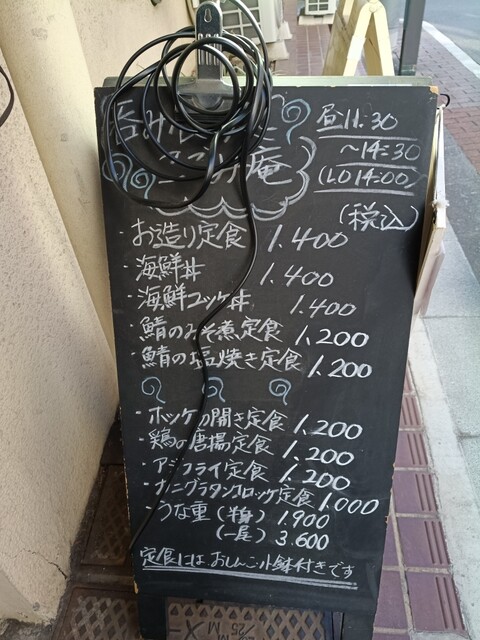 呑み
庵
昼11:30
～14:30
(L.O 14:00)
(税込)
・お造り定食 1.400
・海鮮丼 1.400
・海鮮ユッケ丼 1.400
・鯖のみそ煮定食 1,200
・鯖の塩焼き定食 1.200
・ホッケの開き定食 1.200
・鶏の唐揚定食 1.200
・アジフライ定食 1.200
・カニグラタンコロッケ定食 1.000
・うな重(半身) 1.900
(一尾) 3.600
定食には、おしんこ小鉢付きです